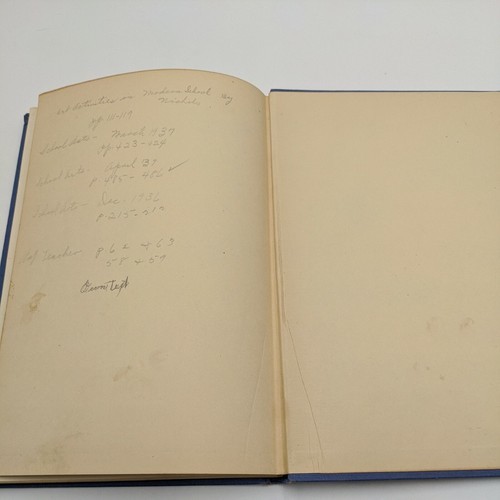 Art Activities in Modern School by
Nichols
School Arts - March 1937
pp. 423-424
School Arts - April 37
p. 485-486 ✓
School Arts - Dec. 1936
p. 215-
Teacher p. 62 + 69
58 + 59
Own Text